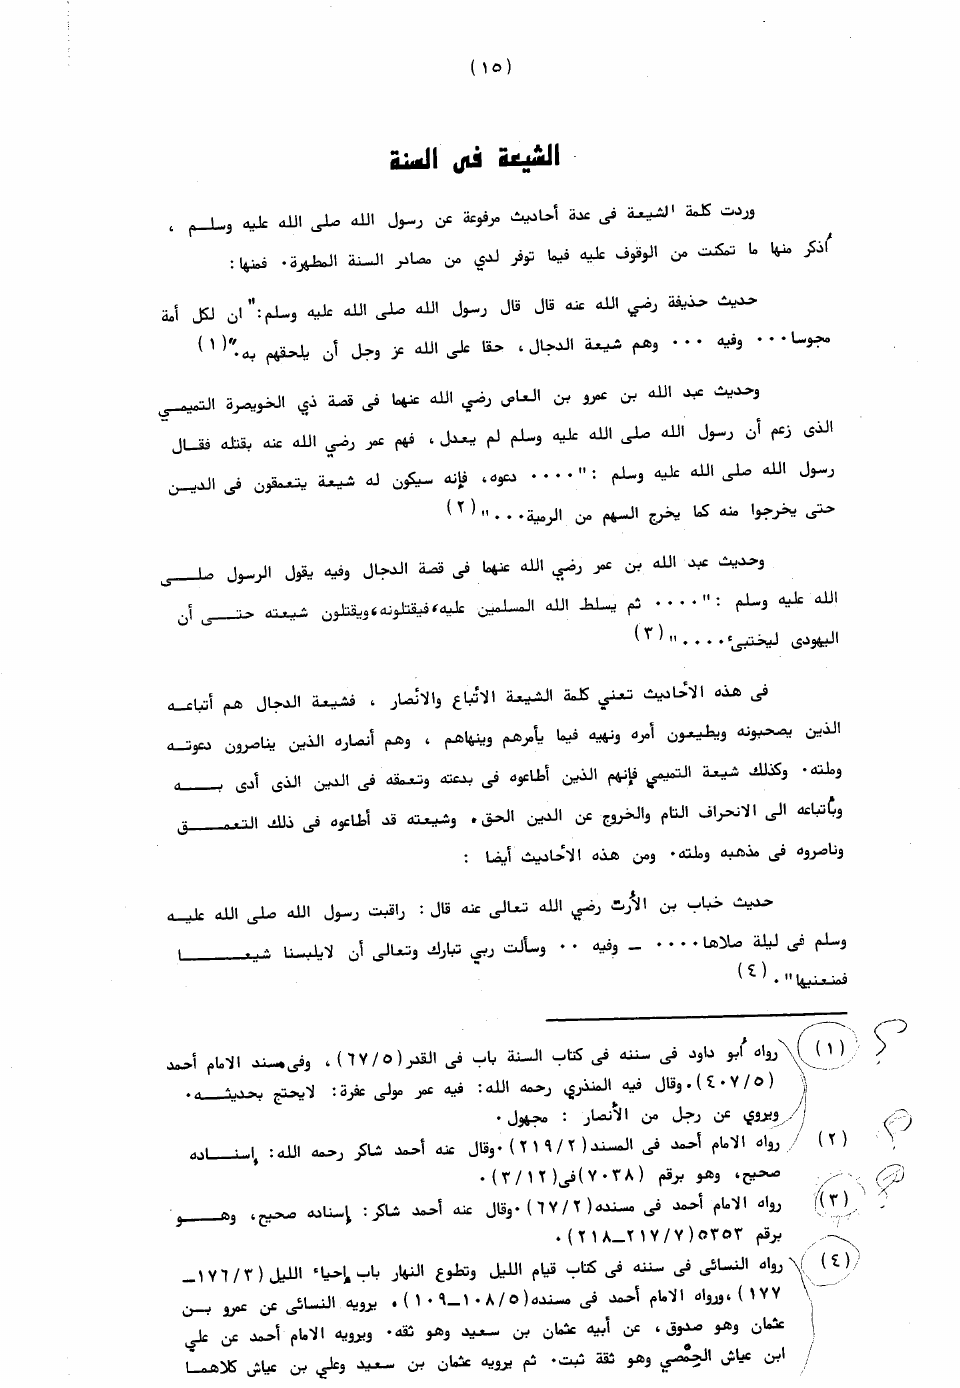 (١٥)
الشيعة فى السنة
وردت كلمة الشيعة فى عدة أحاديث مرفوعة عن رسول الله صلى الله عليه وسلم ،
أذكر منها ما تمكنت من الوقوف عليه فيما توفر لدي من مصادر السنة المطهرة٠ فمنها:
حديث حذيفة رضي الله عنه قال قال رسول الله صلى الله عليه وسلم:" ان لكل أمة
مجوسا٠٠٠ وفيه ٠٠٠ وهم شيعة الدجال، حقا على الله عز وجل أن يلحقهم به٠"(١)
وحديث عبد الله بن عمرو بن العاص رضي الله عنهما فى قصة ذي الخويصرة التميمي
الذى زعم أن رسول الله صلى الله عليه وسلم لم يعدل، فهم عمر رضي الله عنه بقتله فقال
رسول الله صلى الله عليه وسلم :"٠٠٠٠ دعوه، فإنه سيكون له شيعة يتعمقون فى الدين
حتى يخرجوا منه كما يخرج السهم من الرمية٠٠٠"(٢)
وحديث عبد الله بن عمر رضي الله عنهما فى قصة الدجال وفيه يقول الرسول صلى
الله عليه وسلم :"٠٠٠٠ ثم يسلط الله المسلمين عليه،فيقتلونه،ويقتلون شيعته حتى أن
اليهودى ليختبىء٠٠٠٠"(٣)
فى هذه الأحاديث تعني كلمة الشيعة الأتباع والأنصار ، فشيعة الدجال هم أتباعه
الذين يصحبونه ويطيعون أمره ونهيه فيما يأمرهم وينهاهم ، وهم أنصاره الذين يناصرون دعوته
وملته٠ وكذلك شيعة التميمي فإنهم الذين أطاعوه فى بدعته وتعمقه فى الدين الذى أدى به
وبأتباعه الى الانحراف التام والخروج عن الدين الحق٠ وشيعته قد أطاعوه فى ذلك التعمق
وناصروه فى مذهبه وملته٠ ومن هذه الأحاديث أيضا :
حديث خباب بن الأرت رضي الله تعالى عنه قال : راقبت رسول الله صلى الله عليه
وسلم فى ليلة صلاها٠٠٠٠ ــ وفيه ٠٠ وسألت ربي تبارك وتعالى أن لايلبسنا شيعا
فمنعنيها"٠ (٤)
(١) رواه أبو داود فى سننه فى كتاب السنة باب فى القدر(٦٧/٥)، وفى مسند الامام أحمد
(٤٠٧/٥)٠وقال فيه المنذري رحمه الله: فيه عمر مولى عفرة: لايحتج بحديثه٠
ويروي عن رجل من الأنصار : مجهول٠
(٢) رواه الامام أحمد فى المسند(٢١٩/٢)٠وقال عنه أحمد شاكر رحمه الله: إسناده
صحيح، وهو برقم (٧٠٣٨)فى(٣/١٢)٠
(٣) رواه الامام أحمد فى مسنده(٦٧/٢)٠وقال عنه أحمد شاكر: إسناده صحيح، وهو
برقم ٥٣٥٣(٢١٧/٧ــ٢١٨)٠
(٤) رواه النسائى فى سننه فى كتاب قيام الليل وتطوع النهار باب إحياء الليل (١٧٦/٣ــ
١٧٧)،ورواه الامام أحمد فى مسنده(١٠٨/٥ــ١٠٩)٠ يرويه النسائى عن عمرو بن
عثمان وهو صدوق، عن أبيه عثمان بن سعيد وهو ثقه٠ ويرويه الامام أحمد عن علي
ابن عياش الحمصي وهو ثقة ثبت٠ ثم يرويه عثمان بن سعيد وعلي بن عياش كلاهما